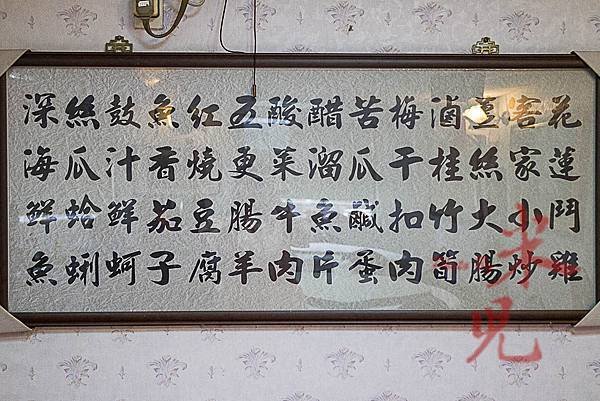 花蓮鬥雞
客家小炒
薑絲大腸
滷桂竹筍
梅干扣肉
苦瓜鹹蛋
醋溜魚片
酸菜牛肉
五更腸羊
紅燒豆腐
魚香茄子
鼓汁鮮蚵
絲瓜蛤蜊
深海鮮魚